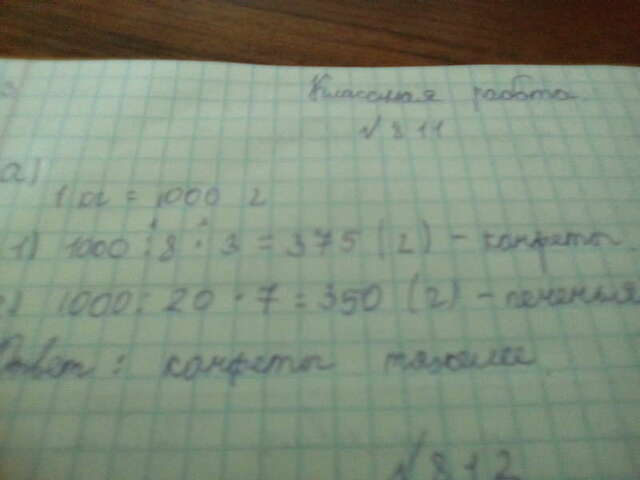 Классная работа
№ 811
а)
1 кг = 1000 г
1) 1000 : 8 · 3 = 375 (г) - конфеты
2) 1000 : 20 · 7 = 350 (г) - печенья
Ответ: конфеты тяжелее
№ 812